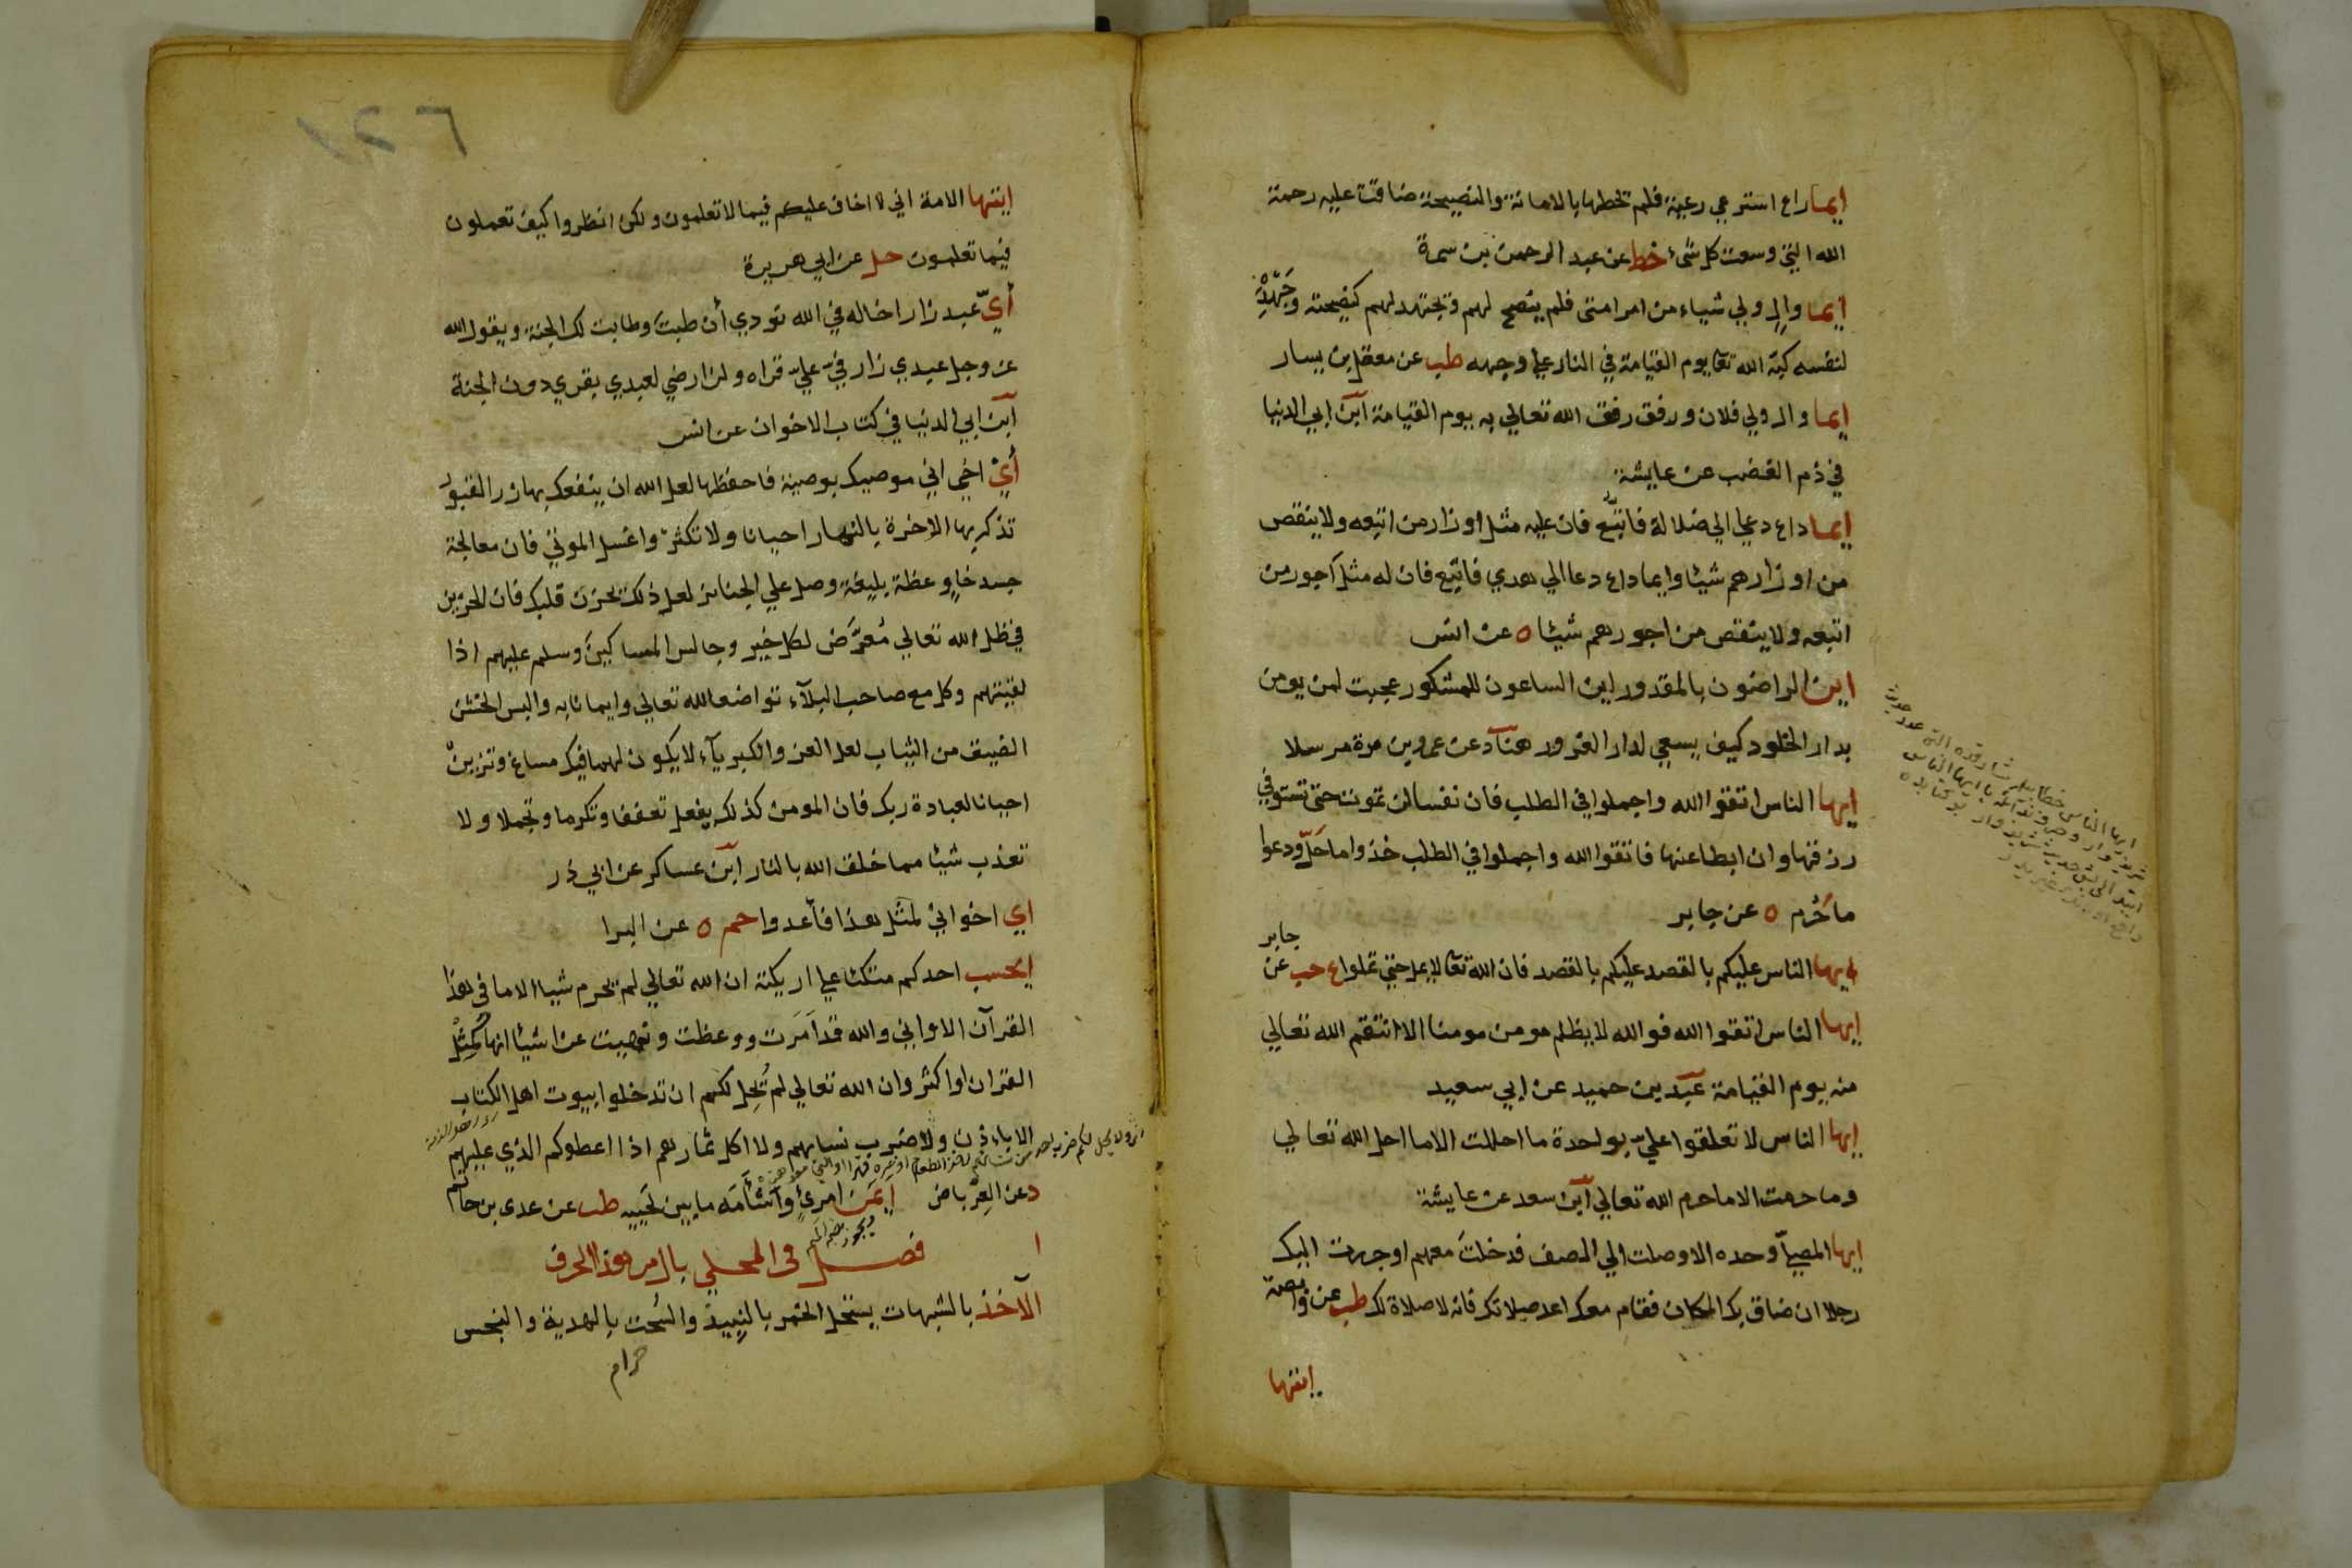 ايما راع استرعي رعية فلم يحطها بالامانة والنصيحة ضاقت عليه رحمة
الله التي وسعت كل شيء خط عن عبد الرحمن بن سمرة
ايما والٍ ولي شياء من امر امتى فلم ينصح لهم وتجتهد لهم كنصيحته وجَهْدِهِ
لنفسه كبّه الله تعا يوم القيامة في النار علي وجهه طب عن معقل بن يسار
ايما وال ولي فلان ورفق رفق الله تعالي به يوم القيامة ابن ابي الدنيا
في ذم الغضب عن عايشة
ايما داع دعي الي ضلالة فاتبّع فان عليه مثل اوزار من اتبعه ولا ينقص
من اوزارهم شيئا وايما داع دعا الي هدي فاتبع فان له مثل اجور من
اتبعه ولا ينقص من اجورهم شيئا ه عن انس
اين الراضون بالمقدور اين الساعون للمشكور عجبت لمن يومن
بدار الخلود كيف يسعي لدار الغرور هناد عن عمرو بن مرة مرسلا
ايها الناس اتقوا الله واجملوا في الطلب فان نفسا لن تموت حتى تستوفي
رزقها وان ابطا عنها فاتقوا الله واجملوا في الطلب خذوا ما حلّ ودعوا
ما حُرم ه عن جابر
ايها الناس عليكم بالقصد عليكم بالقصد فان الله تعا لا يمل حتي تملوا ع حب عن
جابر
ايها الناس اتقوا الله فو الله لا يظلم مومن مومنا الا انتقم الله تعالي
منه يوم القيامة عبد بن حميد عن ابي سعيد
ايها الناس لا تعلقوا عليّ بواحدة ما احللت الا ما احل الله تعالي
وما حرمت الا ما حرم الله تعالي ابن سعد عن عايشة
ايها المصليّ وحده الا وصلت الي الصف فدخلت معهم او جررت اليك
رجلا ان ضاق بك المكان فقام معك اعد صلاتك فانه لا صلاة لك طب عن وابصة
ايتها
ايتها الامة اني لا اخاف عليكم فيما لا تعلمون ولكن انظروا كيف تعملون
فيما تعلمون حل عن ابي هريرة
أيّ عبد زار اخا له في الله نودي أن طبت وطابت لك الجنة ويقول الله
عز وجل عبدي زار فيّ عليّ قراه ولن ارضي لعبدي بقري دون الجنة
ابن ابي الدنيا في كتاب الاخوان عن انس
أيْ اخي اني موصيك بوصية فاحفظها لعل الله ان ينفعك بها زر القبور
تذكر بها الاخرة بالنهار احيانا ولا تكثر واغسل الموتي فان معالجة
جسد خاوٍ عظة بليغة وصل علي الجنائز لعل ذلك يحزن قلبك فان الحزين
في ظل الله تعالي مُعرَّض لكل خير وجالس المساكين وسلم عليهم اذا
لقيتهم وكل مع صاحب البلآء تواضعا لله تعالي وايمانا به والبس الخشن
الضيق من الثياب لعل العز والكبريآء لا يكون لهما فيك مساغ وتزين
احيانا لعبادة ربك فان المومن كذلك يفعل تعففا وتكرما وتجملا ولا
تعذب شيئا مما خلق الله بالنار ابن عساكر عن ابي ذر
اي اخواني لمثل هذا فأعدوا حم ه عن البرا
ايحسب احدكم متكئا علي اريكته ان الله تعالي لم يحرم شيئا الا ما في هذا
القرآن الا واني والله قد امَرت ووعظت ونهيت عن اشيئا انها كمثل
القران او اكثر وان الله تعالي لم يُحِل لكم ان تدخلوا بيوت اهل الكتاب
الا باذن ولا ضرب نسايهم ولا اكل ثمارهم اذا اعطوكم الذي عليهم
د عن العِرباض ايمَن امرئ وأشْأَمَه ما بين لَحييه طب عن عدى بن حاتم
فصل في المحلي بال من هذا الحرف
الآخذ بالشبهات يستحل الخمر بالنبيذ والسُحت بالهدية والبخس